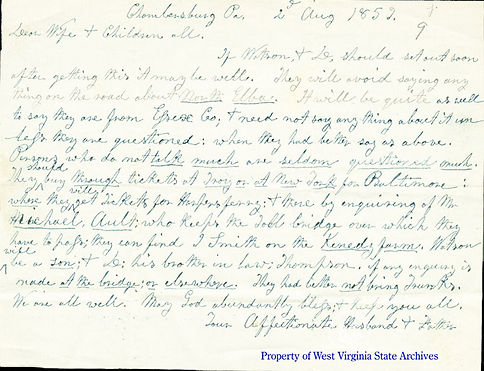 Chambersburg Pa. 2d Aug 1859.
9
Dear Wife & Children all.
If Watson, & D, should set out soon
after getting this it may be well. They will avoid saying any
thing on the road about North Elba. It will be quite as well
to say they are from Essex Co, & need not say any thing about it un
less they are questioned: when they had better say as above.
Persons who do not talk much are seldom questioned much.
should
They buy through tickets at Troy or at New York for Baltimore:
will
where they get Tickets for Harpers ferry; & there by enquiring of Mr
Michael Ault; who keeps the Toll bridge over which they
have to pass; they can find I Smith on the Kenedy farm. Watson
will
be a son; & D; his brother in law; Thompson. if any enquiry is
made at the bridge; or elsewhere. They had better not bring trunks.
We are all well. May God abundantly bless; & keep you all.
Your Affectionate Husband & Father
Property of West Virginia State Archives